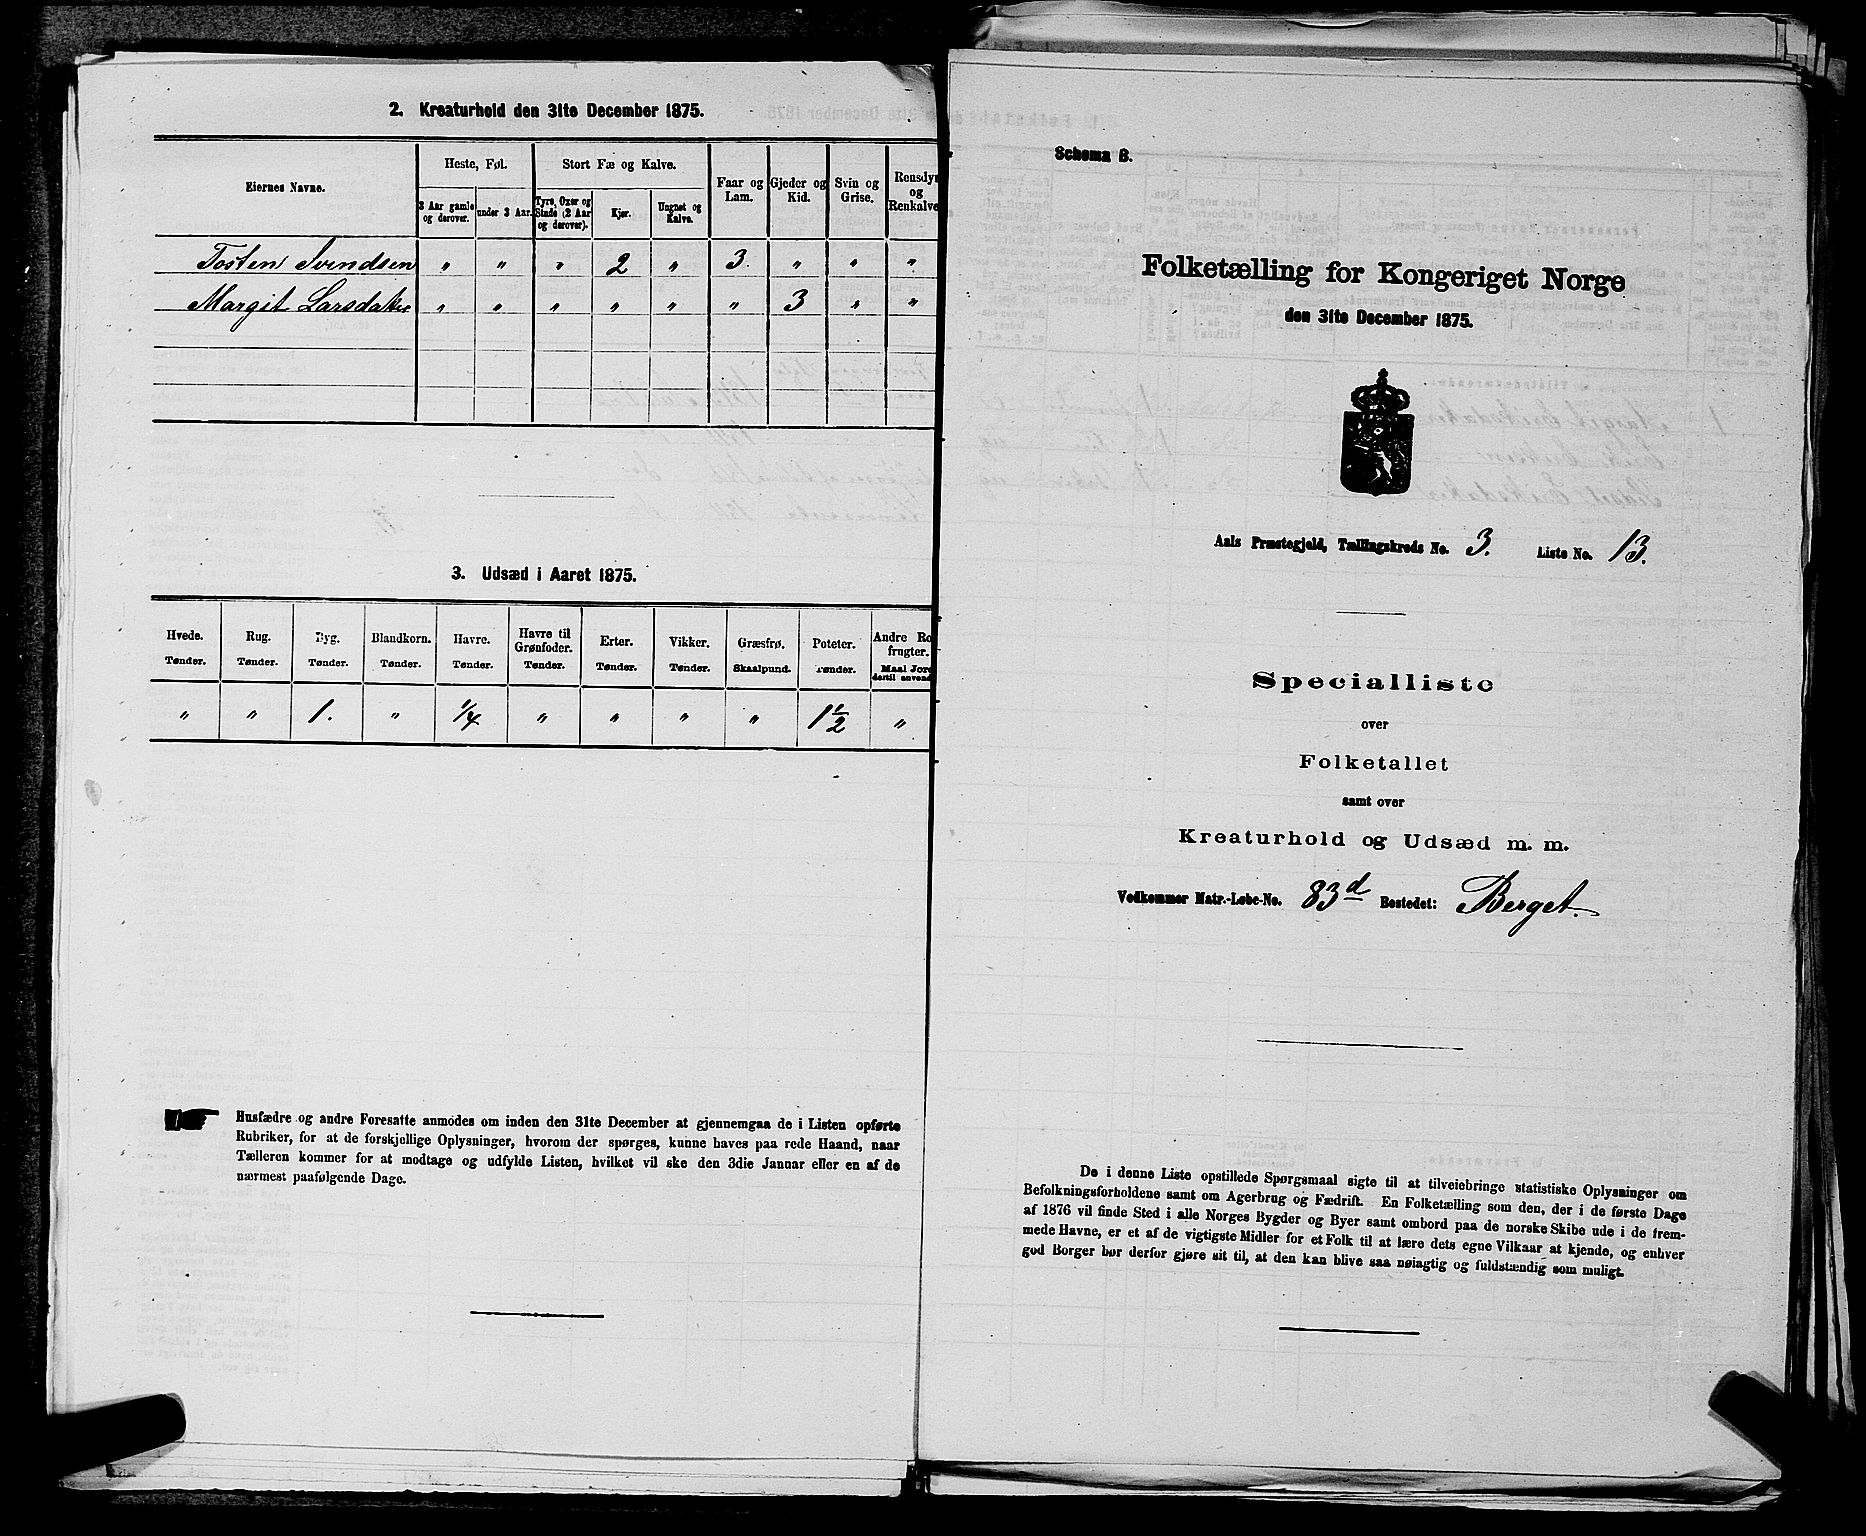 2. Kreaturhold den 31te December 1875.
Eiernes Navne.
Heste, Føl.
Stort Fæ og Kalve.
Faar og Lam.
Gjeder og Kid.
Svin og Grise.
Rensdyr og Renkalve
3 Aar gamle og derover.
under 3 Aar.
Tyre, Oxer og Stude (2 Aar og derover).
Kjør.
Ungnet og Kalve.
Tosten Svendsen " " " 2 " 3. " " "
Margit Larsdatter " " " " " " 3 " "
3. Udsæd i Aaret 1875.
Hvede. Rug. Byg. Blandkorn. Havre. Havre til Grønfoder. Erter. Vikker. Græsfrø. Poteter. Andre Ro frugter.
Tønder. Tønder. Tønder. Tønder. Tønder. Tønder. Tønder. Tønder. Skaalpund. Tønder. Maal Jord dertil anvend
" " 1. " 1/4 " " " " 1 1/2 "
Husfædre og andre Foresatte anmodes om inden den 31te December at gjennemgaa de i Listen opførte
Rubriker, for at de forskjellige Oplysninger, hvorom der spørges, kunne haves paa rede Haand, naar
Tælleren kommer for at modtage og udfylde Listen, hvilket vil ske den 3die Januar eller en af de
nærmest paafølgende Dage.
Schema B.
Folketælling for Kongeriget Norge
den 31te December 1875.
Aals Præstegjeld, Tællingskreds No. 3. Liste No. 13.
Specialliste
over
Folketallet
samt over
Kreaturhold og Udsæd m. m.
Vedkommer Matr.-Løbe-No. 83d Bostedet: Berget.
De i denne Liste opstillede Spørgsmaal sigte til at tilveiebringe statistiske Oplysninger om
Befolkningsforholdene samt om Agerbrug og Fædrift. En Folketælling som den, der i de første Dage
af 1876 vil finde Sted i alle Norges Bygder og Byer samt ombord paa de norske Skibe ude i de frem-
mede Havne, er et af de vigtigste Midler for et Folk til at lære dets egne Vilkaar at kjende, og enhver
god Borger bør derfor gjøre sit til, at den kan blive saa nøiagtig og fuldstændig som muligt.